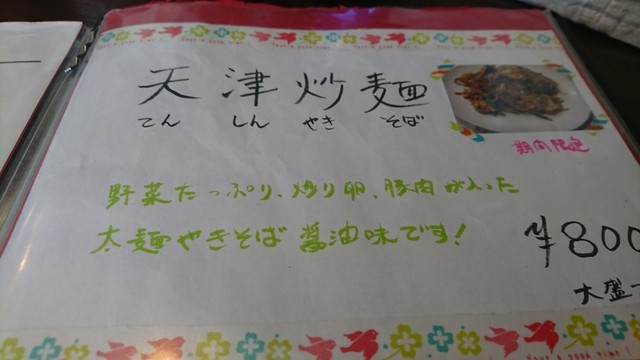 天津炒麺
てん しん やき そば
期間限定
野菜たっぷり、炒り卵、豚肉が入った
太麺やきそば 醤油味です!
¥800
大盛